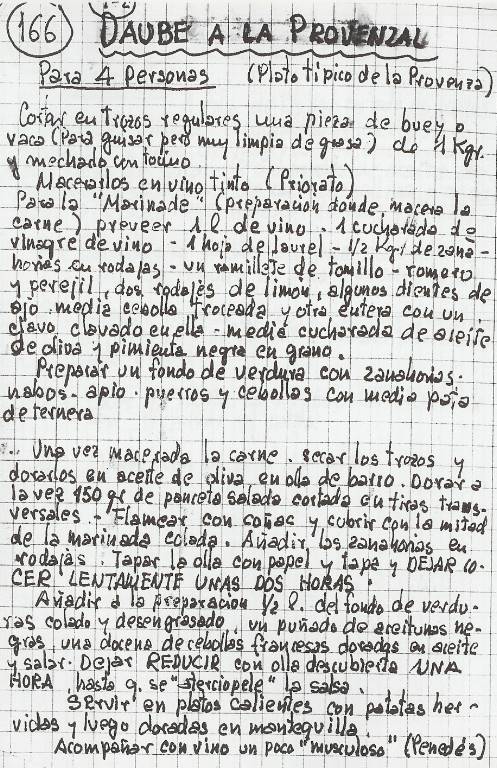 166 DAUBE A LA PROVENZAL
Para 4 personas (Plato típico de la Provenza)
Cortar en trozos regulares una pieza de buey o
vaca (Para guisar pero muy limpia de grasa) de 1 Kgr.
y mechado con tocino
Macerarlos en vino tinto (Priorato)
Para la "Marinade" (preparación donde macera la
carne) preveer 1 l. de vino - 1 cucharada de
vinagre de vino - 1 hoja de laurel - 1/2 Kgr de zana-
horias en rodajas - un ramillete de tomillo - romero
y perejil, dos rodajes de limón, algunos dientes de
ajo. media cebolla troceada y otra entera con un
clavo clavado en ella - media cucharada de aceite
de oliva y pimienta negra en grano.
Preparar un fondo de verdura con zanahorias.
nabos - apio - puerros y cebollas con media pata
de ternera
Una vez macerada la carne. secar los trozos y
dorarlos en aceite de oliva, en olla de barro. Dorar a
la vez 150 gr de panceta salada cortada en tiras trans-
versales - Flamear con coñac y cubrir con la mitad
de la marinada colada. Añadir las zanahorias en
rodajas. Tapar la olla con papel y tapa y DEJAR CO-
CER LENTAMENTE UNAS DOS HORAS.
Añadir a la preparación 1/2 l. del fondo de verdu-
ras colado y desengrasado, un puñado de aceitunas ne-
gras, una docena de cebollas francesas doradas en aceite
y salar. Dejar REDUCIR con olla descubierta UNA
HORA, hasta q. se "aterciopele" la salsa.
Servir en platos calientes con patatas her-
vidas y luego doradas en mantequilla.
Acompañar con vino un poco "musculoso" (Penedés)